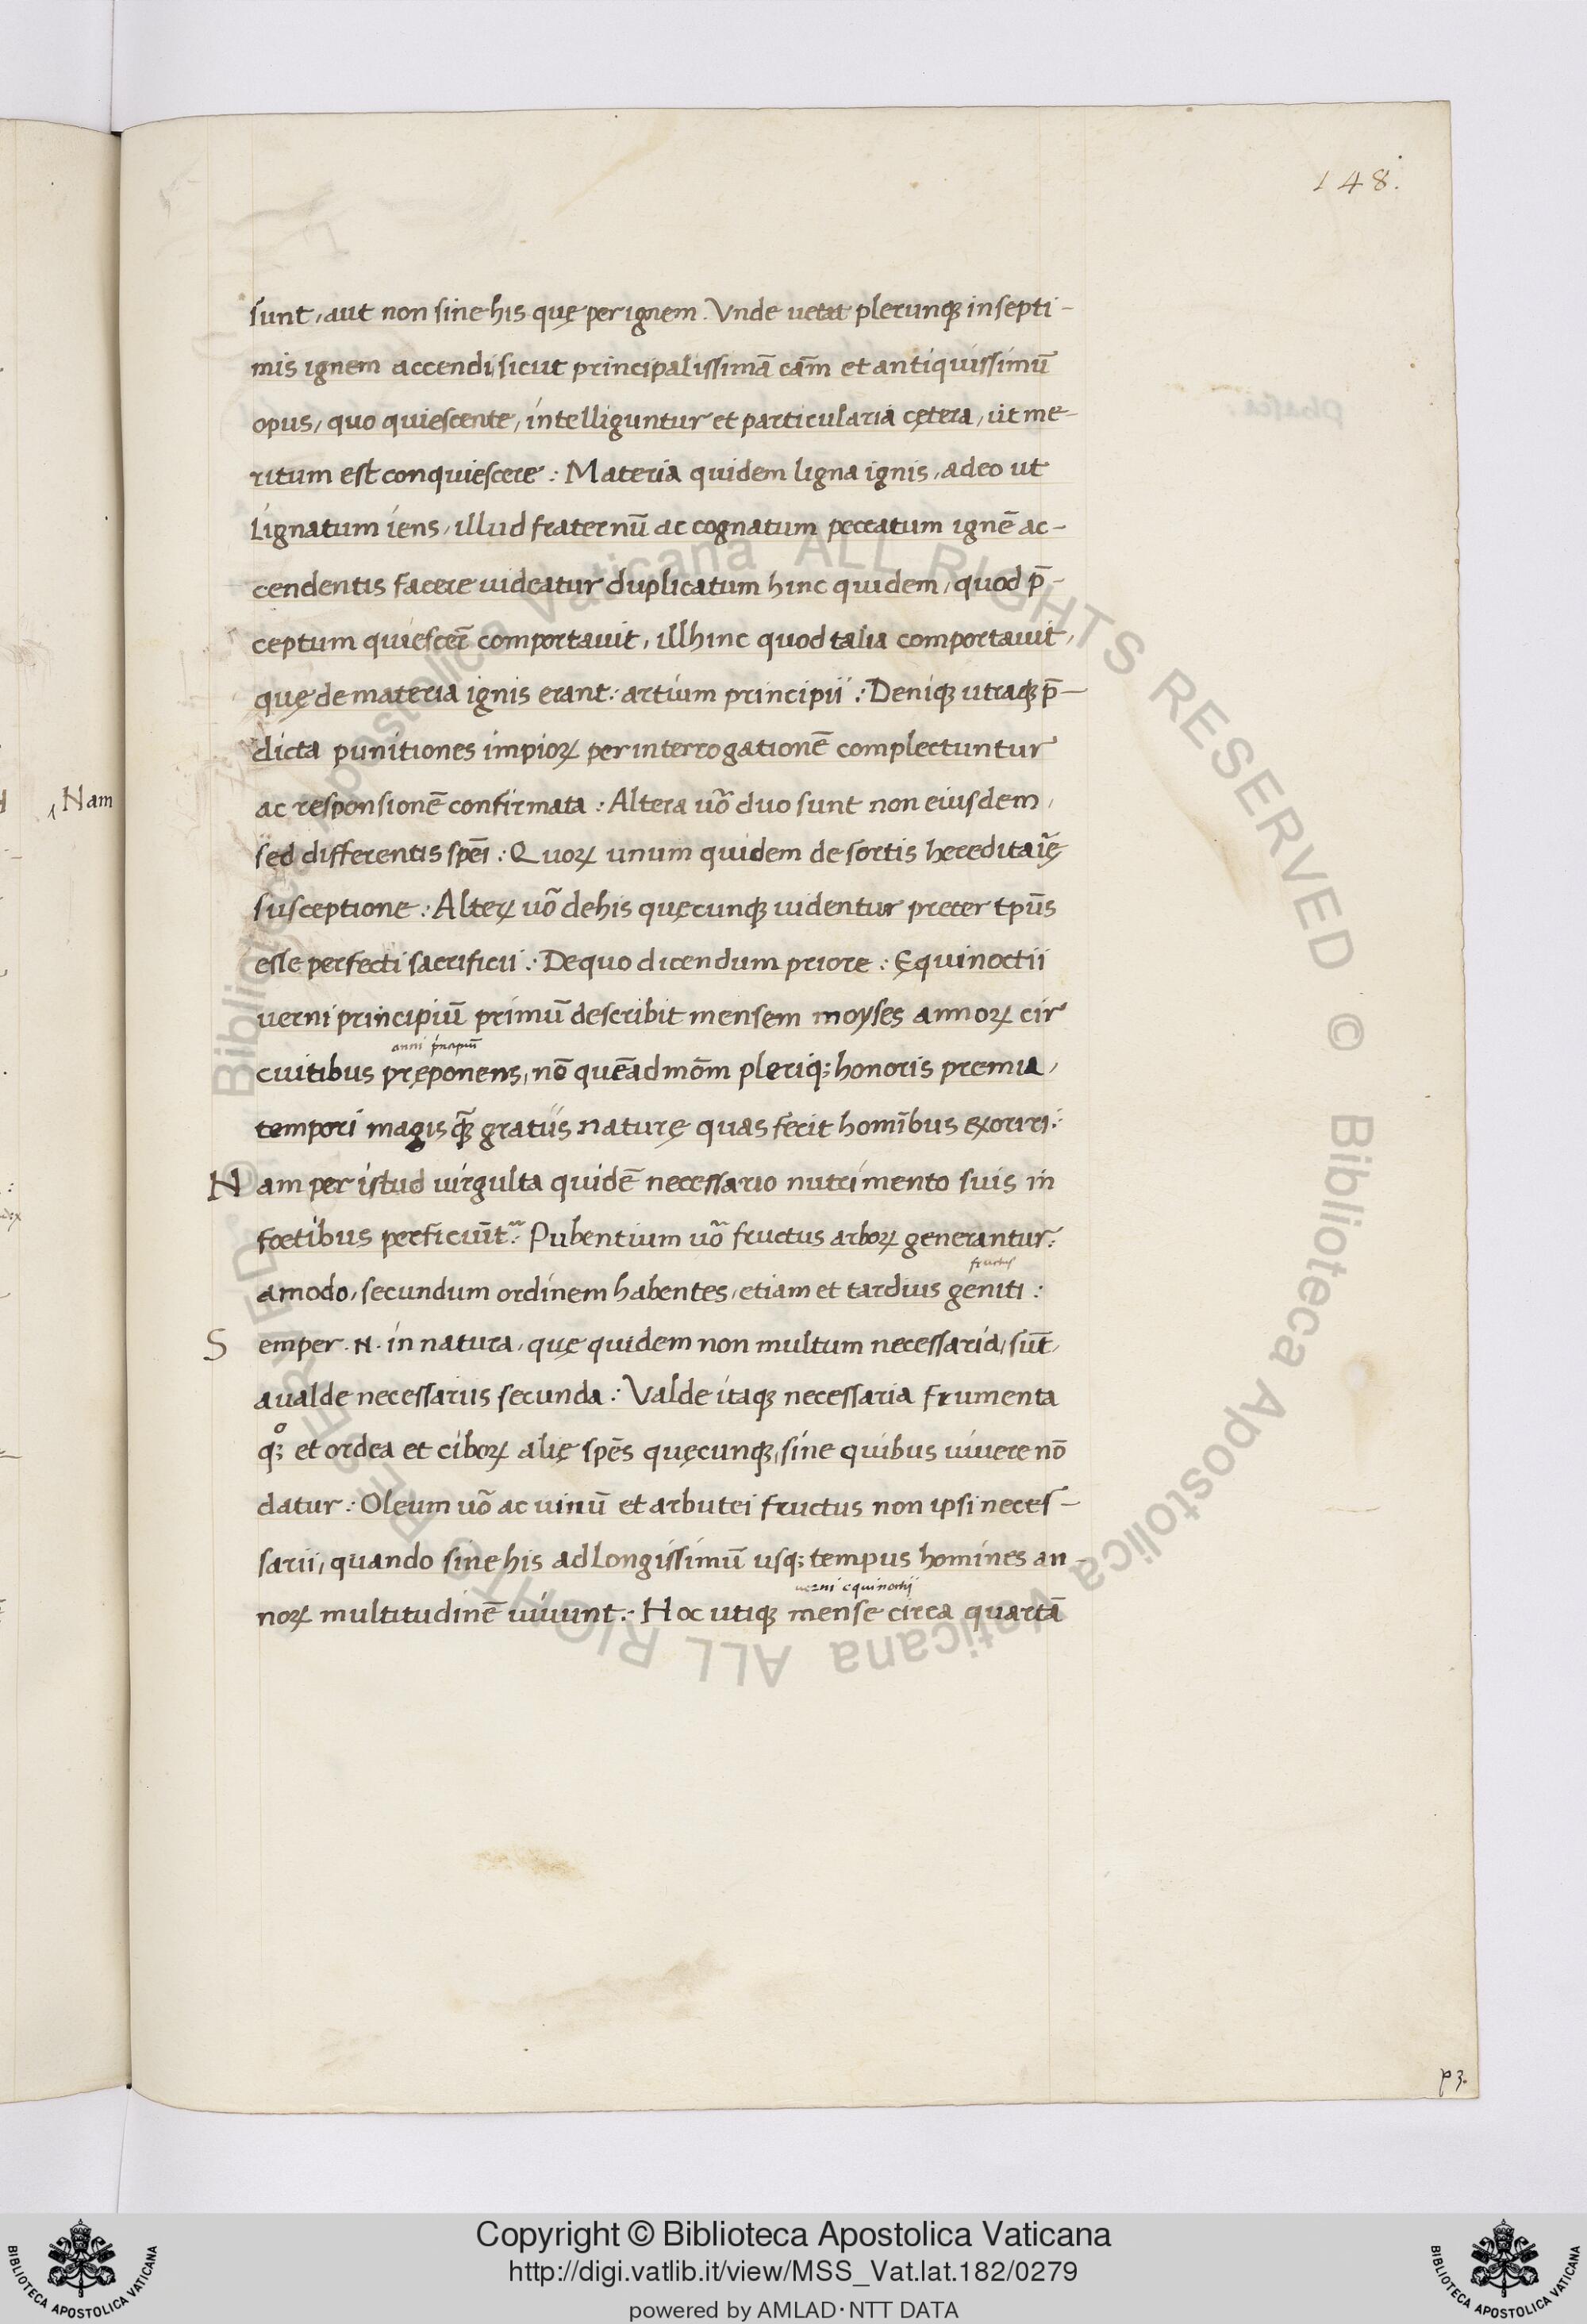 148.
sunt, aut non sine his quę per ignem. Vnde uetat plerunqꝫ in septi-
mis ignem accendi, sicut principalissimā cām et antiquissimū
opus, quo quiescente, intelliguntur et particularia cętera, ut me-
ritum est conquiescere: Materia quidem ligna ignis, adeo ut
Lignatum iens, illud fraternū ac cognatum peccatum ignē ac-
cendentis facere uideatur duplicatum hinc quidem, quod p̄-
ceptum quiescer̄ comportauit, illhinc quod talia comportauit,
quę de materia ignis erant: artium principii: Deniqꝫ utraqꝫ p̄-
dicta punitiones impioꝝ per interrogationē complectuntur
ac responsionē confirmata: Altera uō duo sunt non eiusdem,
sed differentis spēi: Quoꝝ unum quidem de sortis hereditar̄ię
susceptione: Alteꝝ uō de his quęcunqꝫ uidentur preter tpūs
esse perfecti sacrificii: De quo dicendum priore: Ęquinoctii
uerni principiū primū describit mensem moyses annoꝝ cir
anni p̄ncipiū
cuitibus pręponens, nō quēadmōm pleriqꝫ honoris premia,
tempori magis qꝫ̄ gratiis naturę quas fecit homībus exoriri:
Nam per istud uirgulta quidē necessario nutrimento suis in
foetibus perficiūt: Pubentium uō fructus arboꝝ generantur:
fructus
amodo, secundum ordinem habentes, etiam et tardius geniti:
Semper .N. in natura, quę quidem non multum necessaria, sūt,
aualde necessariis secunda: Valde itaqꝫ necessaria frumenta
qꝫ̊ et ordea et ciboꝝ alię spēs quęcunqꝫ, sine quibus uiuere nō
datur: Oleum uō ac uinū et arbutei fructus non ipsi neces-
sarii, quando sine his ad Longissimū usqꝫ tempus homines an-
uerni equinoctij
noꝝ multitudinē uiuunt: Hoc utiqꝫ mense circa quartā
p3.
Nam
Copyright © Biblioteca Apostolica Vaticana
http://digi.vatlib.it/view/MSS_Vat.lat.182/0279
powered by AMLAD·NTT DATA
BIBLIOTECA APOSTOLICA VATICANA
BIBLIOTECA APOSTOLICA VATICANA
© Biblioteca Apostolica Vaticana ALL RIGHTS RESERVED © Biblioteca Apostolica Vaticana ALL RIGHTS RESERVED